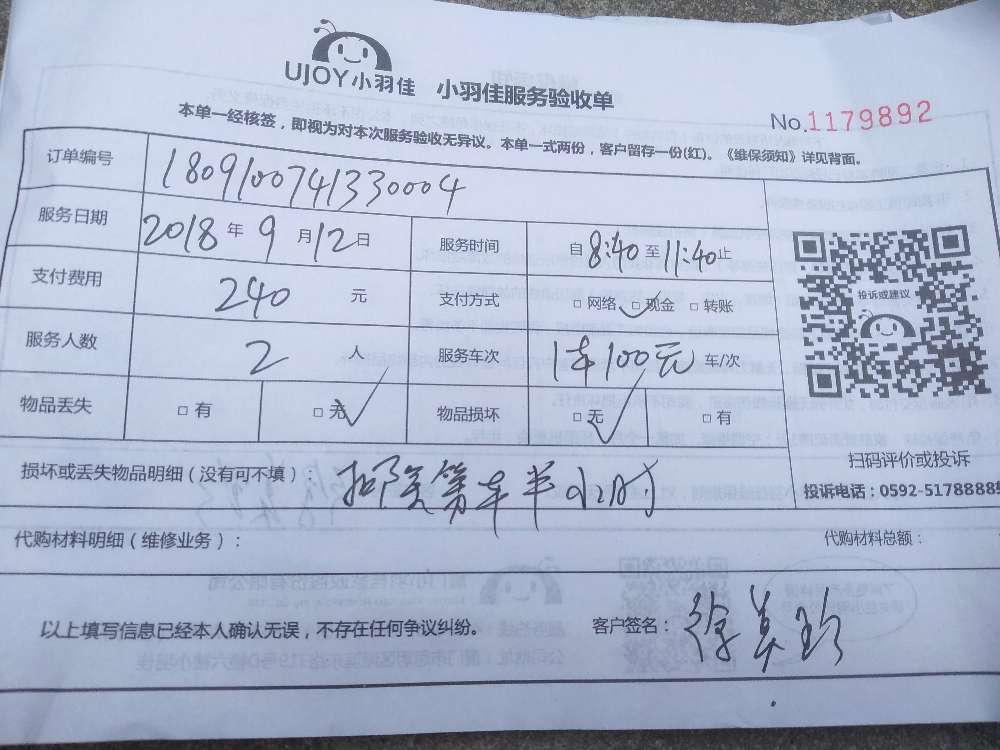 UJOY小羽佳 小羽佳服务验收单
No.1179892
本单一经核签，即视为对本次服务验收无异议。本单一式两份，客户留存一份(红)。《维保须知》详见背面。
订单编号 1809100741330004
服务日期 2018 年 9 月 12 日 服务时间 自 8:40 至 11:40 止
支付费用 240 元 支付方式 □ 网络 □ 现金 □ 转账
服务人数 2 人 服务车次 1车100元 车/次
物品丢失 □ 有 □ 无 物品损坏 □ 无 □ 有
投诉或建议
扫码评价或投诉
投诉电话：0592-5178888
损坏或丢失物品明细（没有可不填）： 扣除等车半小时
代购材料明细（维修业务）： 代购材料总额：
以上填写信息已经本人确认无误，不存在任何争议纠纷。 客户签名： 徐美珍